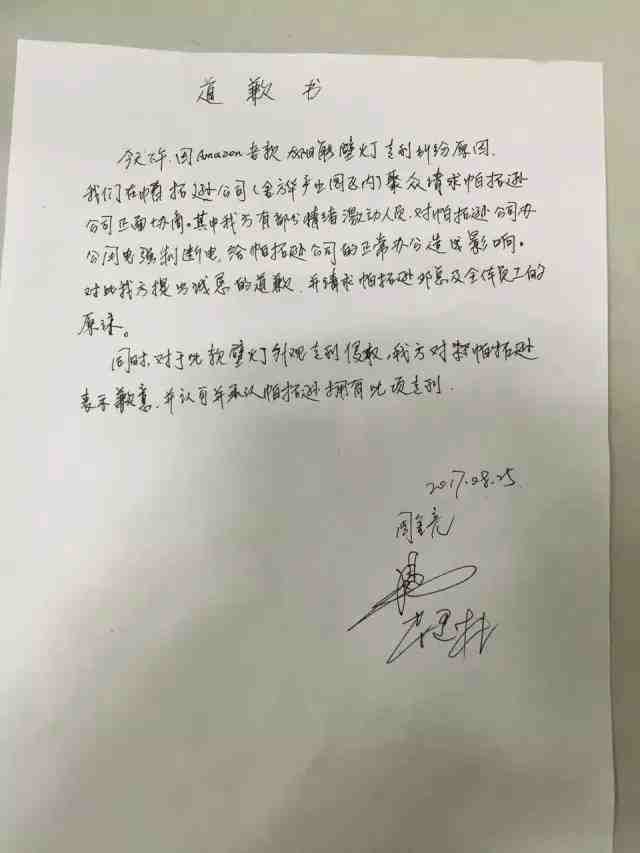 道歉书
今天下午,因Amazon某款太阳能壁灯专利纠纷原因,
我们在帕拓逊公司(金方华产业园区内)聚众请求帕拓逊
公司正面协商。其中我方有部分情绪激动人员,对帕拓逊公司办
公间电强制断电,给帕拓逊公司的正常办公造成影响。
对此我方提出诚恳的道歉,并请求帕拓逊邓总及全体员工的
原谅。
同时,对于此款壁灯外观专利侵权,我方对帕拓逊
表示歉意,并认可并承认帕拓逊拥有此项专利.
2017.08.25